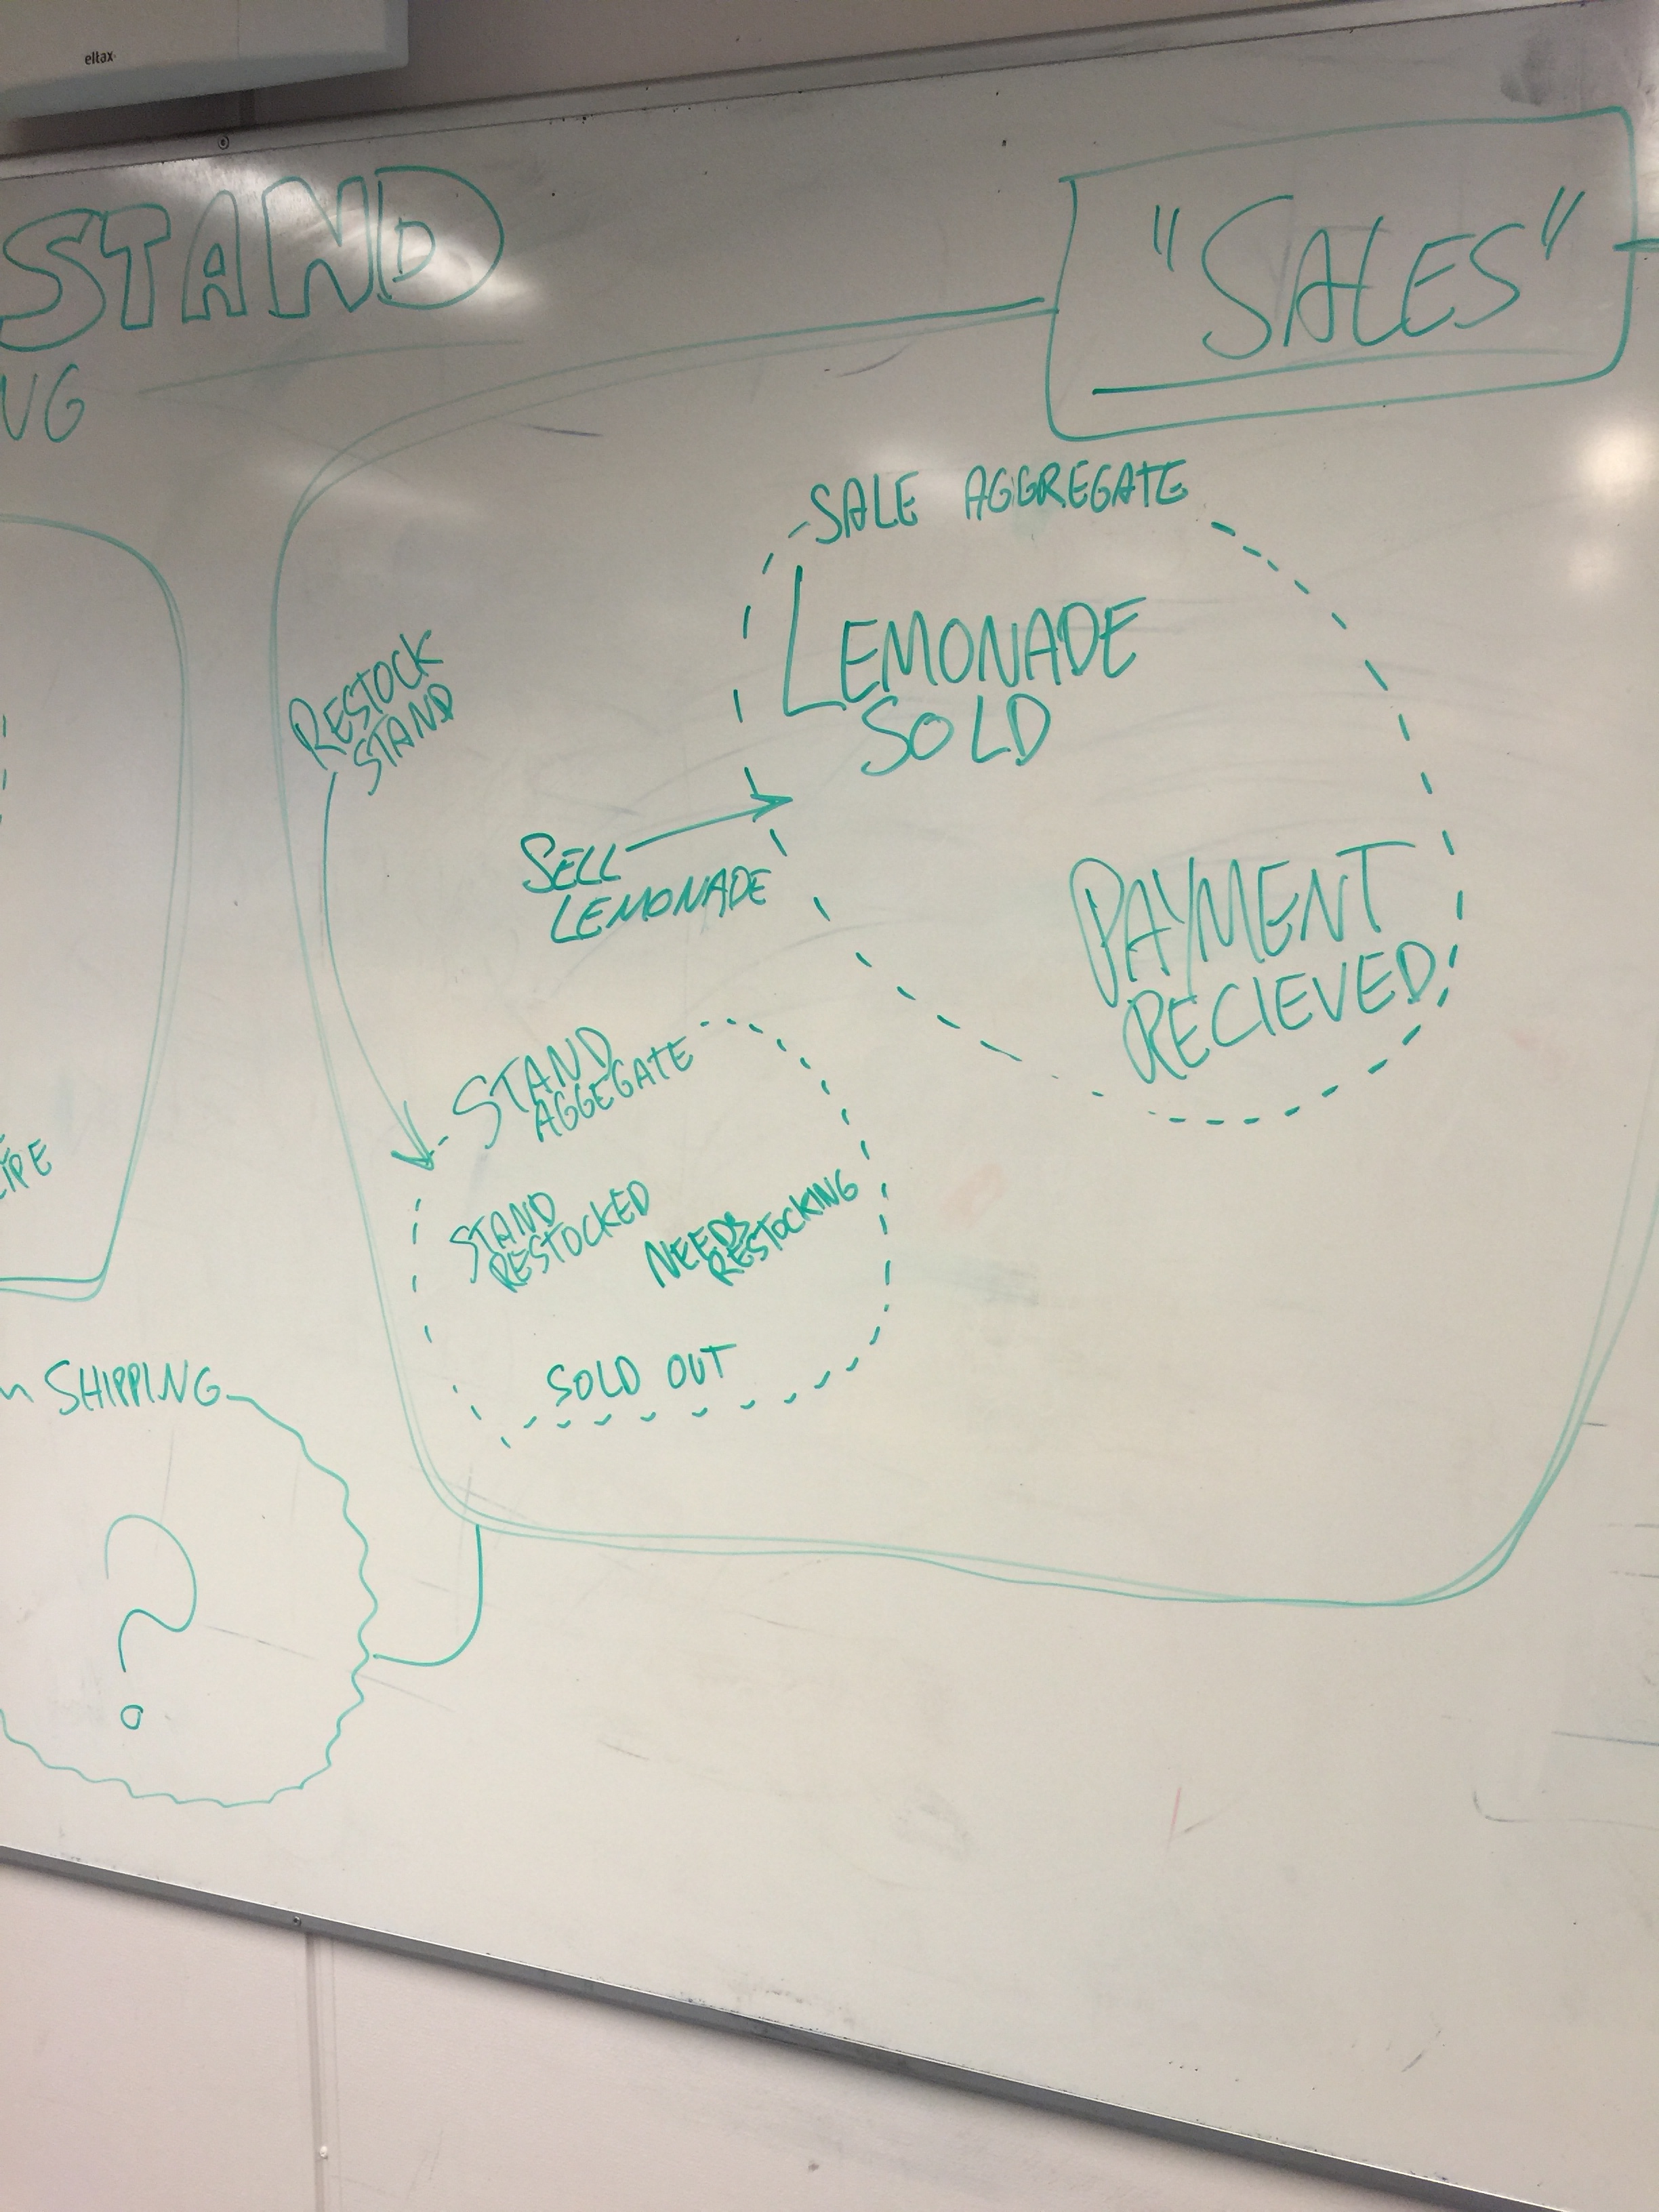 eltax
STAND
"SALES"
NG
SALE AGGREGATE
LEMONADE
SOLD
RESTOCK
STAND
SELL
LEMONADE
PAYMENT
RECIEVED
STAND
AGGEGATE
STAND
RESTOCKED
NEEDS
RESTOCKING
SOLD OUT
SHIPPING
?